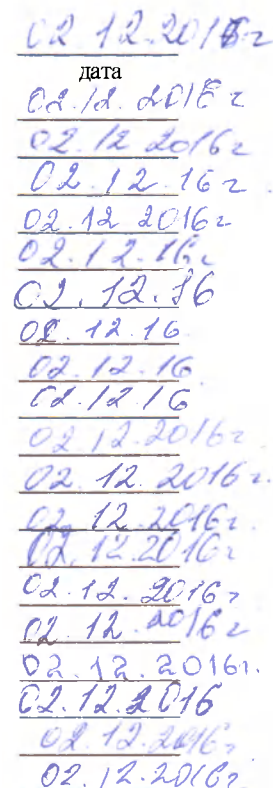 02.12.2016г
дата
02.12.2016г
02.12.2016г
02.12.16г
02.12.2016г
02.12.16г
02.12.16
02.12.16
02.12.16
02.12.16
02.12.2016г
02.12.2016г
02.12.2016г.
02.12.2016г
02.12.2016г
02.12.2016г
02.12.2016г.
02.12.2016
02.12.2016г
02.12.2016г.